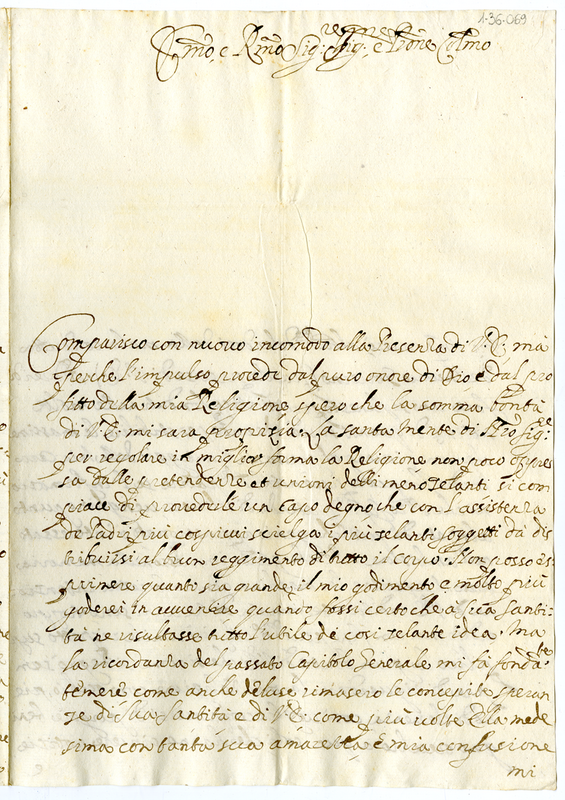 1-36-069
Em͠o e R͠mo Sig.r Sig.r e P͠rone Col͠mo
Comparisco con nuovo incomodo alla Presenza di V.E. ma
perche l'impulso procede dal puro onore di Dio e dal pro
fitto della mia Religione spero che la somma bontà
di V.E. mi sara propizia. La santa mente di N͠ro Sig.re
per regolare in miglior forma la Religione non poco oppres
sa dalle pretendenze et unioni delli meno zelanti si com
piace di provederle un Capo degno che con l'assistenza
de Padri più cospicui scielga i più zelanti soggetti da dis
tribuirsi al buon reggimento di tutto il Corpo. Non posso es
primere quanto sia grande il mio godimento e molto più
goderei in avvenire quando fossi certo che a Sua Santi
tà ne risultasse tutto l'utile de così zelante idea. Ma
la ricordanza del passato Capitolo Generale mi fà fondata.te
temere come anche deluse rimasero le concepite speran
ze di Sua Santità e di V.E. come più volte Ella mede
sima con tanta sua amarezza e mia confusione
mi